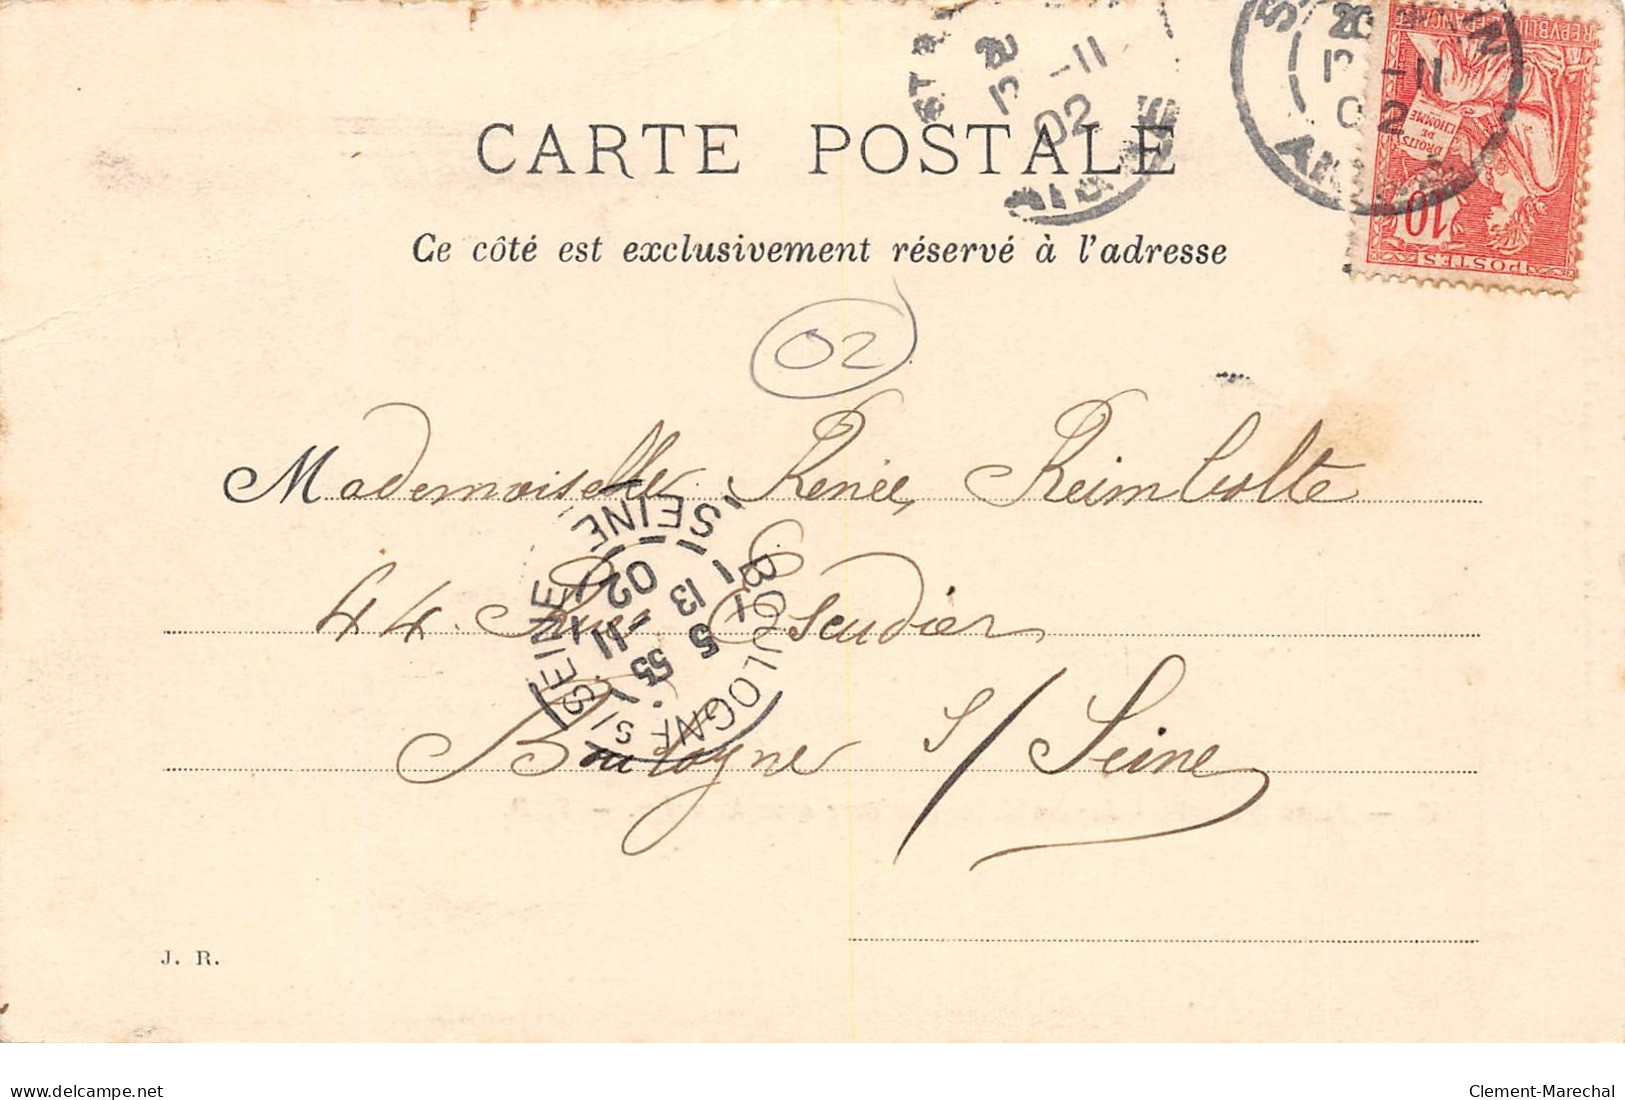 CARTE POSTALE
Ce côté est exclusivement réservé à l'adresse
02
Mademoiselle Renée Reimbolte
44 Rue Escudier
Boulogne s/ Seine
J. R.
-11
02
-11
02
RÉPUBLIQUE FRANÇAISE
DROITS DE L'HOMME
10
POSTES
BOULOGNE S/SEINE
SEINE
5 55
13 -11
02
delcampe.net
Clement-Marechal